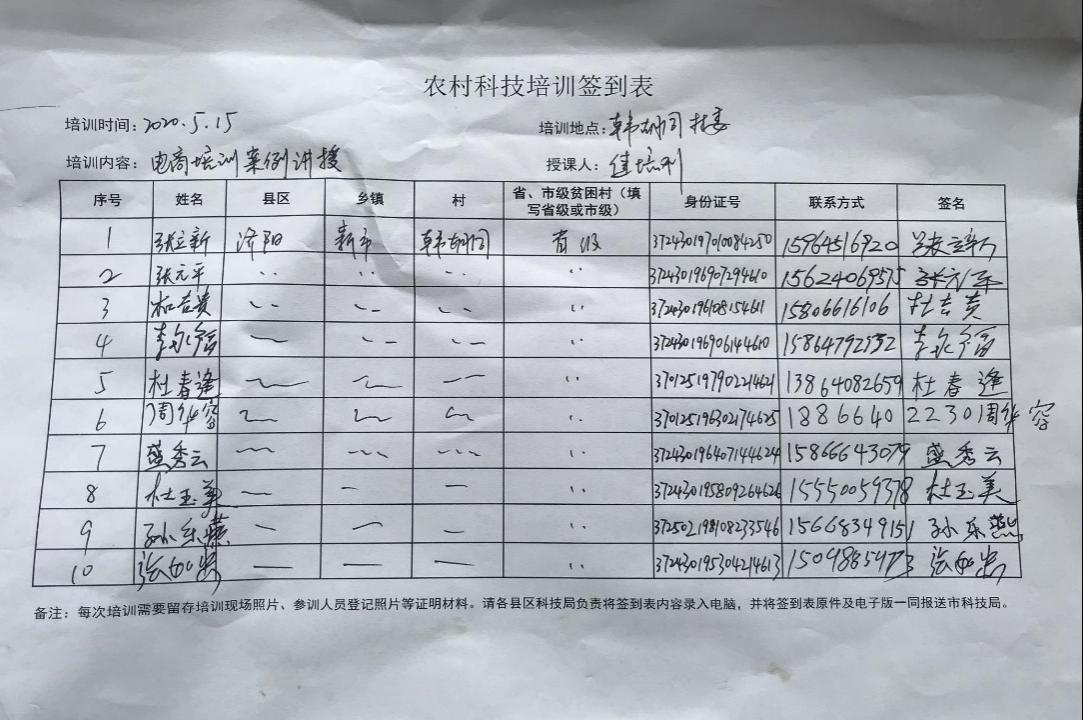 农村科技培训签到表
培训时间：2020.5.15 培训地点：韩胡同村委
培训内容：电商培训案例讲授 授课人：
序号 姓名 县区 乡镇 村 省、市级贫困村（填写省级或市级） 身份证号 联系方式 签名
1 张立新 济阳 新市 韩胡同 省级 372430197010084250 15964516920 张立新
2 张元平 〃 〃 〃 〃 372430196907294610 15624069575 张元平
3 杜吉贵 〃 〃 〃 〃 372430196108154611 15806616106 杜吉贵
4 李永富 〃 〃 〃 〃 372430196906144610 15864792332 李永富
5 杜春逢 〃 〃 〃 〃 370125197902214621 13864082659 杜春逢
6 周华容 〃 〃 〃 〃 370125196302174625 18866402230 周华容
7 盛秀云 〃 〃 〃 〃 372430196407144624 15866643079 盛秀云
8 杜玉美 〃 〃 〃 〃 372430195809264626 15550059378 杜玉美
9 孙乐燕 〃 〃 〃 〃 372502198108233546 15668349151 孙乐燕
10 〃 〃 〃 〃 372430195304214613
备注：每次培训需要留存培训现场照片、参训人员登记照片等证明材料。请各县区科技局负责将签到表内容录入电脑，并将签到表原件及电子版一同报送市科技局。